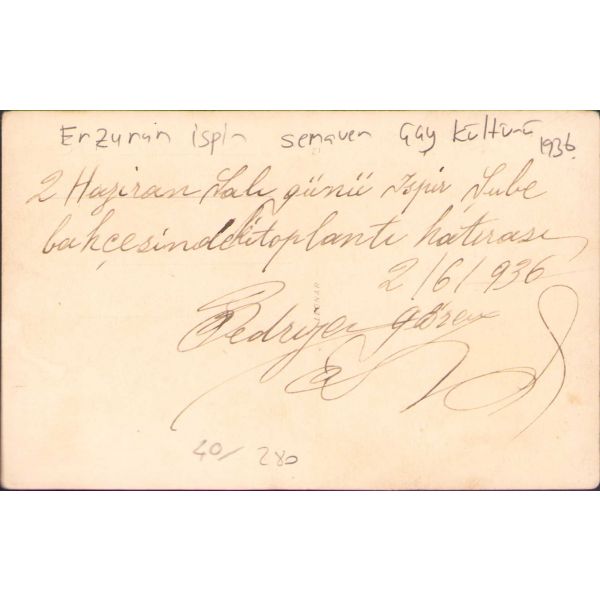 Erzurum ispir semaver Çay Kültürü 1936.
2 Haziran Salı günü Ispir Şube
bahçesindeki toplantı hatırası
2/6/936
Bedriye Gören
20/ 280